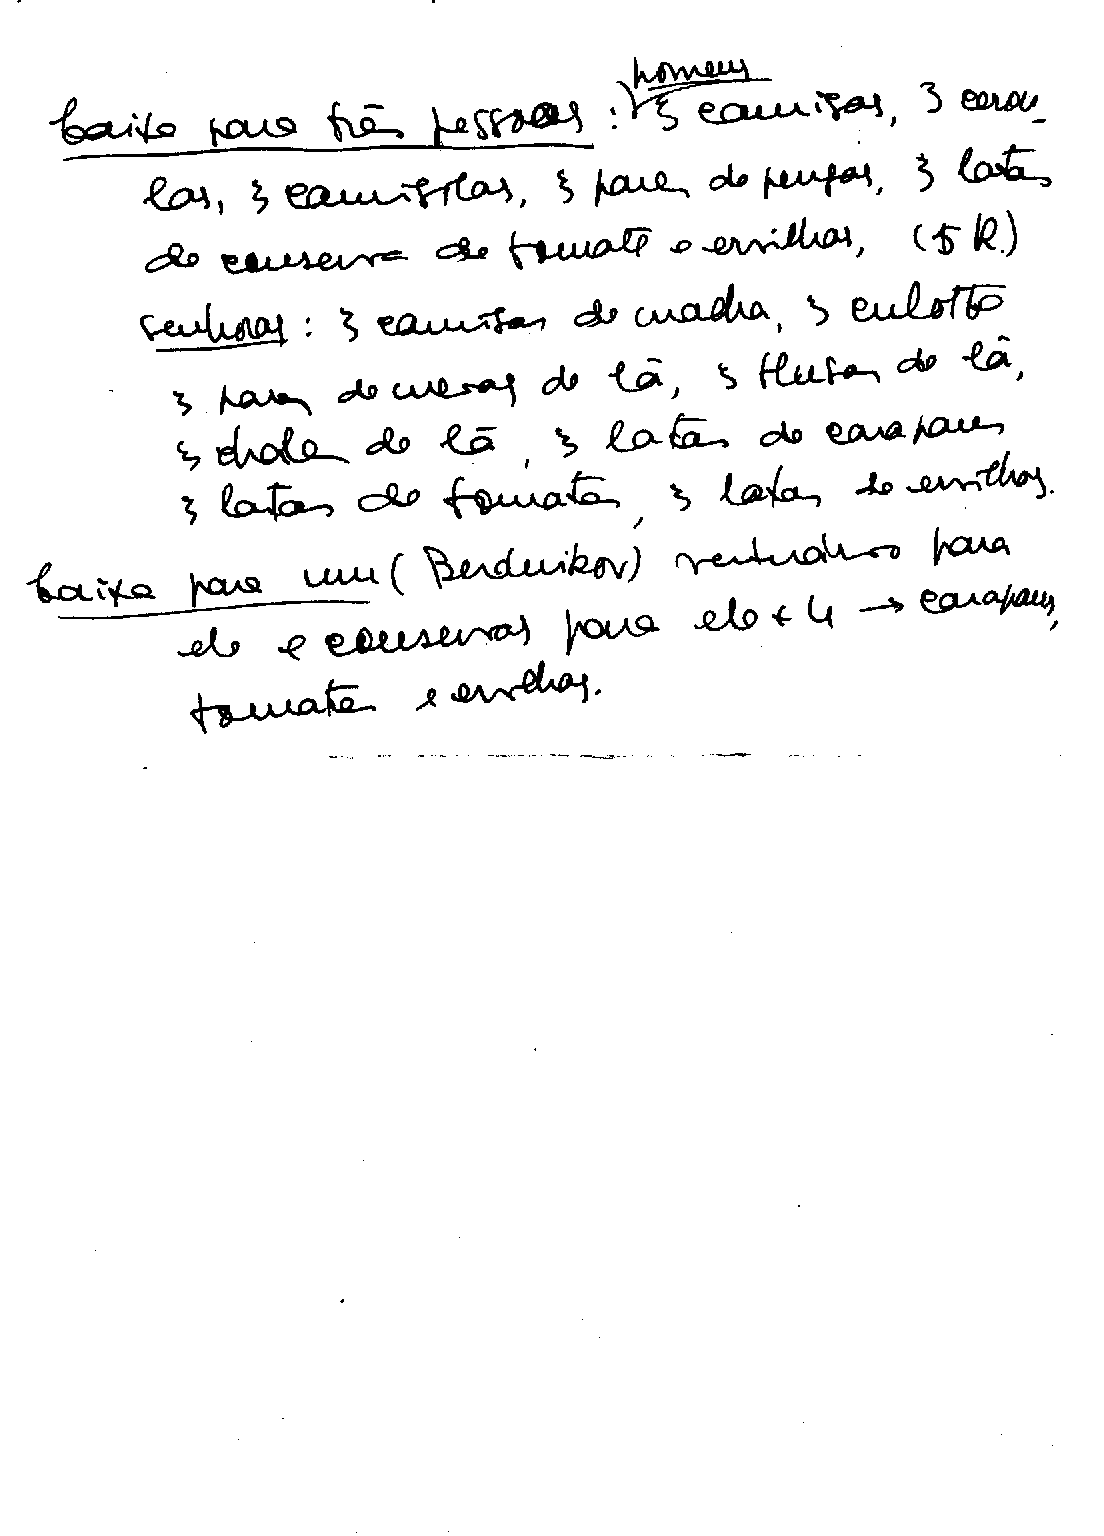 homens
baixa para três pessoas : 3 camisas, 3 cerou-
las, 3 camisolas, 3 pares de peugas, 3 latas
de conserva de tomate e ervilhas, (5 R.)
senhoras : 3 camisas de madra, 3 culotte
3 pares de meias de lã, 3 blusas de lã,
3 chales de lã, 3 latas de carapaus
3 latas de tomate, 3 latas de ervilhas.
baixa para um (Berdnikov) vestuário para
ele e conservas para ele + 4 → carapaus,
tomate e ervilhas.